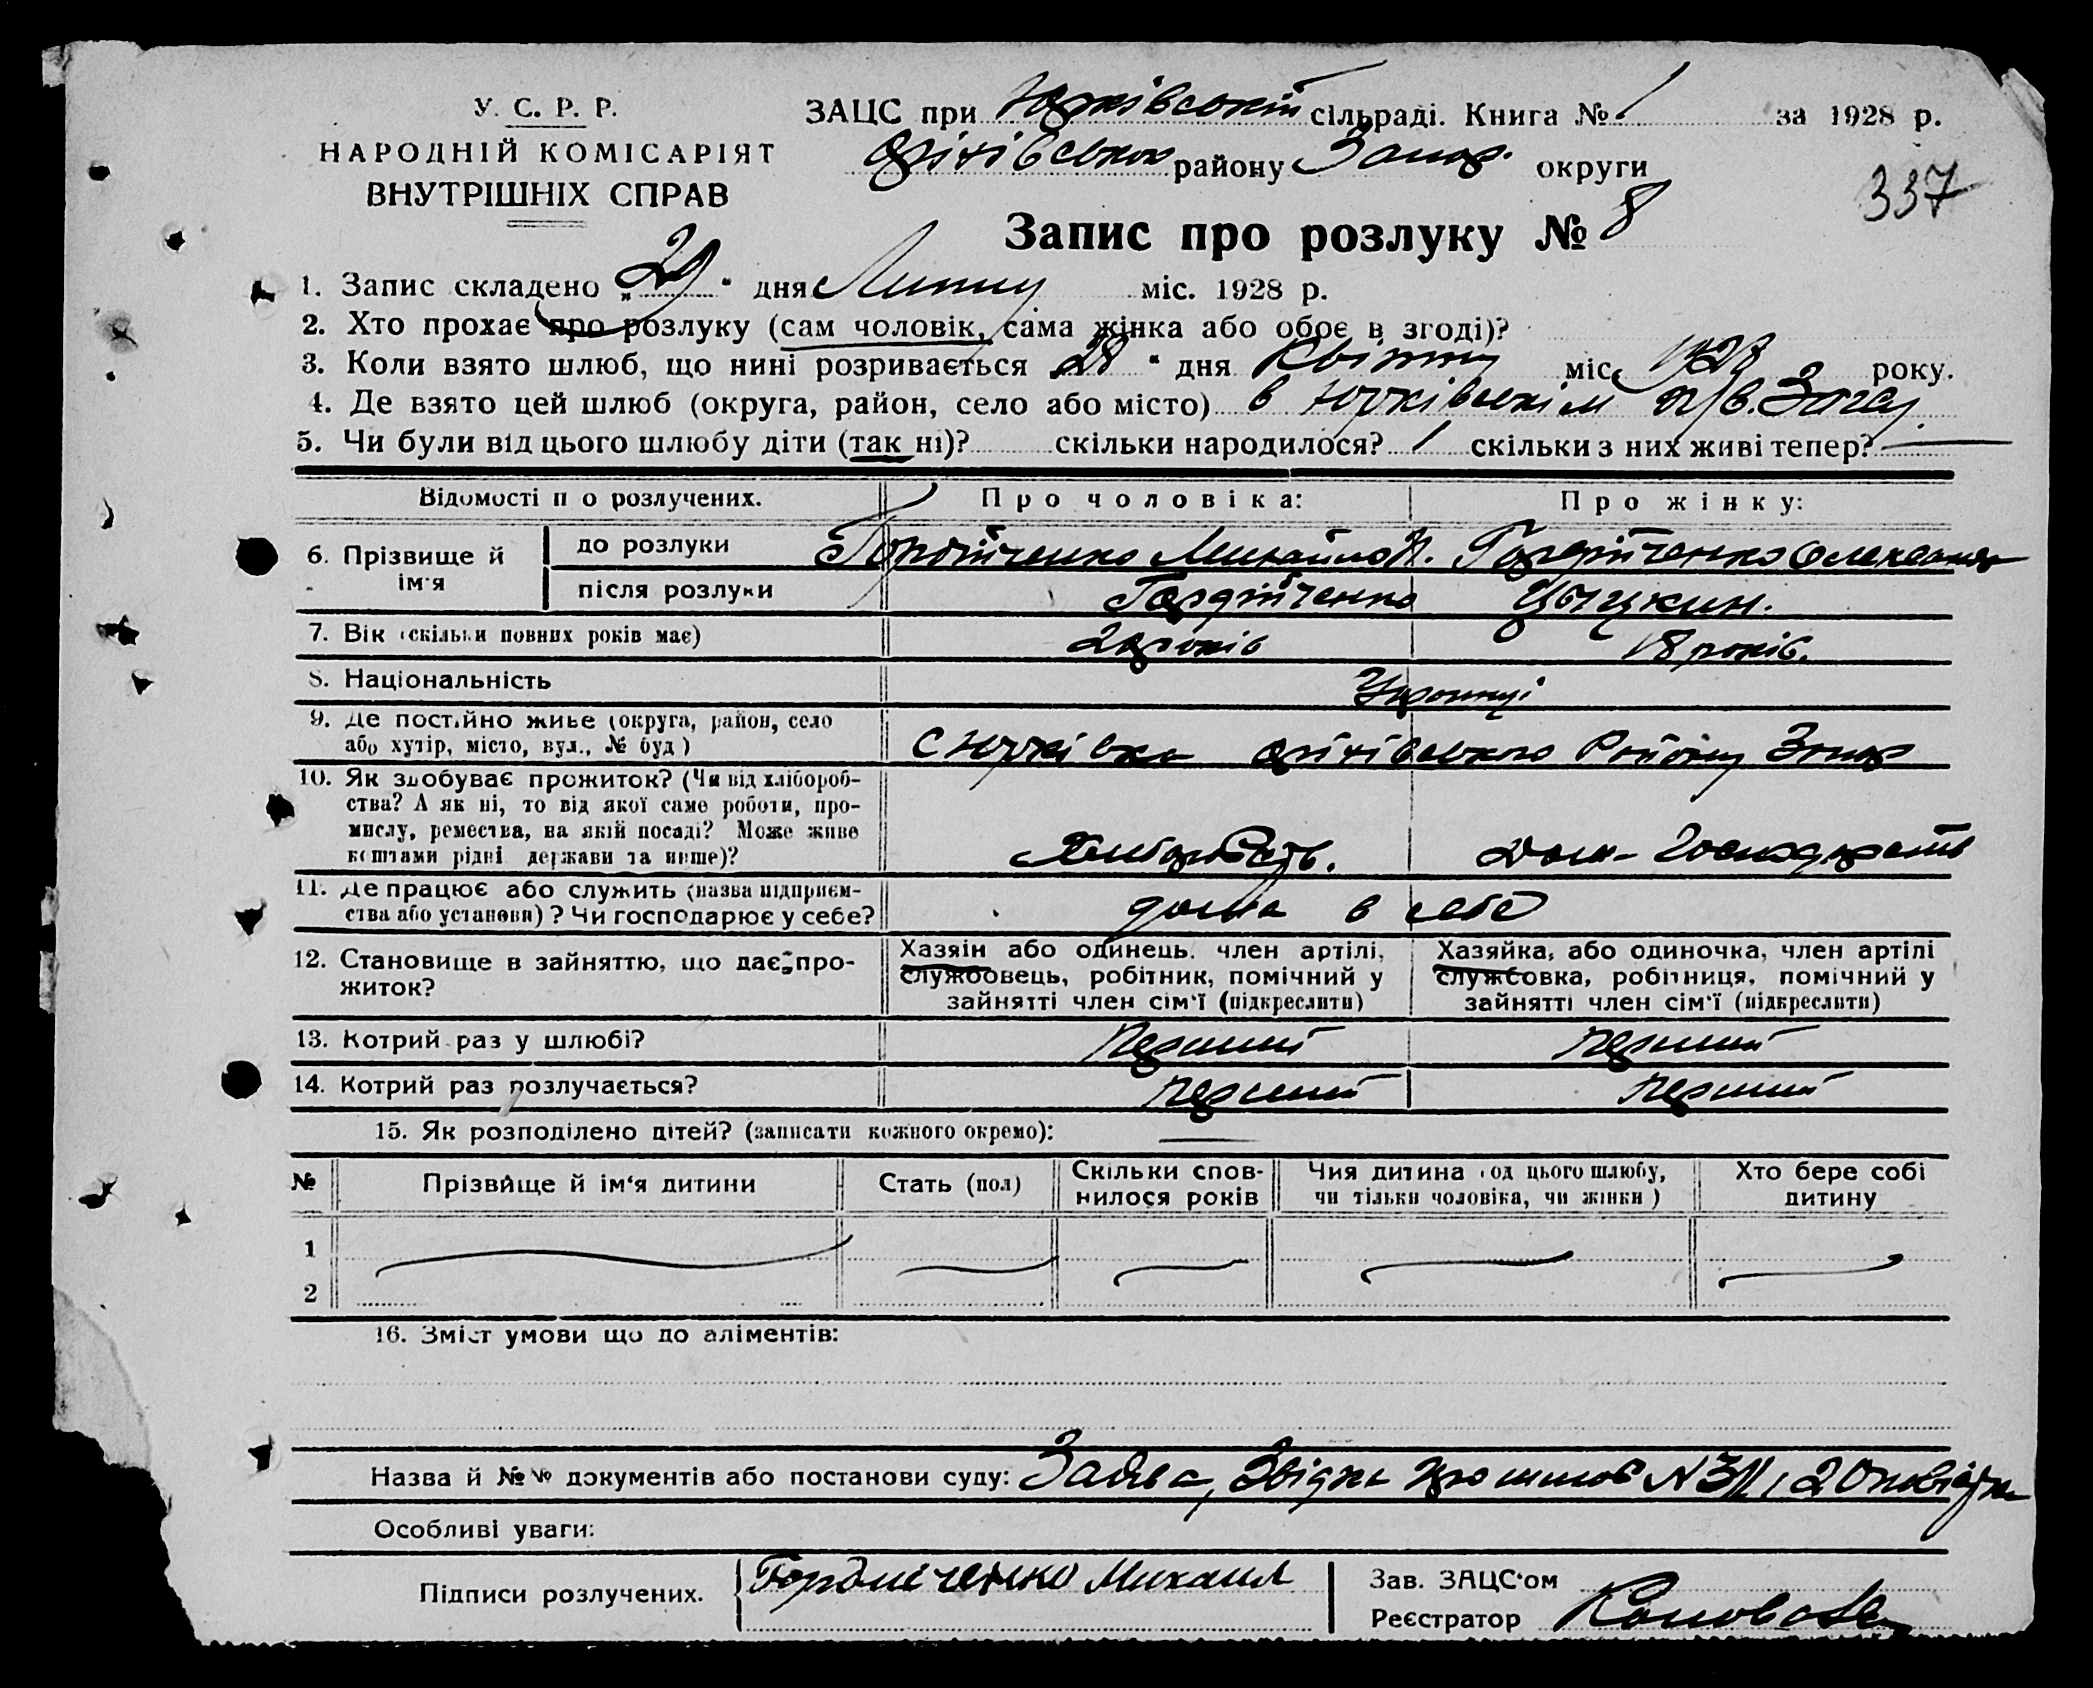 У. С. Р. Р.
НАРОДНІЙ КОМІСАРІЯТ
ВНУТРІШНІХ СПРАВ
ЗАЦС при Юрківській сільраді. Книга № 1 за 1928 р.
Оріхівського району Запор. округи
337
Запис про розлуку № 8
1. Запис складено „ " дня Липня міс. 1928 р.
2. Хто прохає про розлуку (сам чоловік, сама жінка або обоє в згоді)?
3. Коли взято шлюб, що нині розривається 28 " дня Квітня міс. року.
4. Де взято цей шлюб (округа, район, село або місто) в Юрківськім
5. Чи були від цього шлюбу діти (так ні)? скільки народилося? 1 скільки з них живі тепер? —
Відомості п о розлучених.
Про чоловіка:
Про жінку:
6. Прізвище й ім'я
до розлуки
Гордійченко Михайло Гордійченко
після розлуки
Гордійченко
7. Вік (скільки повних років має)
років 18 років.
8. Національність
Українці
9. Де постійно живе (округа, район, село
або хутір, місто, вул., № буд)
с Юрківка Оріхівського Району Запор
10. Як здобуває прожиток? (Чи від хлібороб-
ства? А як ні, то від якої саме роботи, про-
мислу, ремества, на якій посаді? Може живе
коштами рідні держави та инше)?
Дом-Господарств
11. Де працює або служить (назва підприєм-
ства або установи)? Чи господарює у себе?
дома в себе
12. Становище в зайняттю, що дає про-
житок?
Хазяїн або одинець. член артілі,
службовець, робітник, помічний у
зайнятті член сім'ї (підкреслити)
Хазяйка, або одиночка, член артілі
службовка, робітниця, помічний у
зайнятті член сім'ї (підкреслити)
13. Котрий раз у шлюбі?
Перший Перший
14. Котрий раз розлучається?
перший перший
15. Як розподілено дітей? (записати кожного окремо): —
№
Прізвище й ім'я дитини
Стать (пол)
Скільки спов-
нилося років
Чия дитина (од цього шлюбу,
чи тільки чоловіка, чи жінки)
Хто бере собі
дитину
1
2
16. Зміст умови що до аліментів:
Назва й №№ документів або постанови суду: Заява, Звідка про шлюб N
Особливі уваги:
Підписи розлучених.
Гордиеченко Михаил
Зав. ЗАЦС'ом
Реєстратор